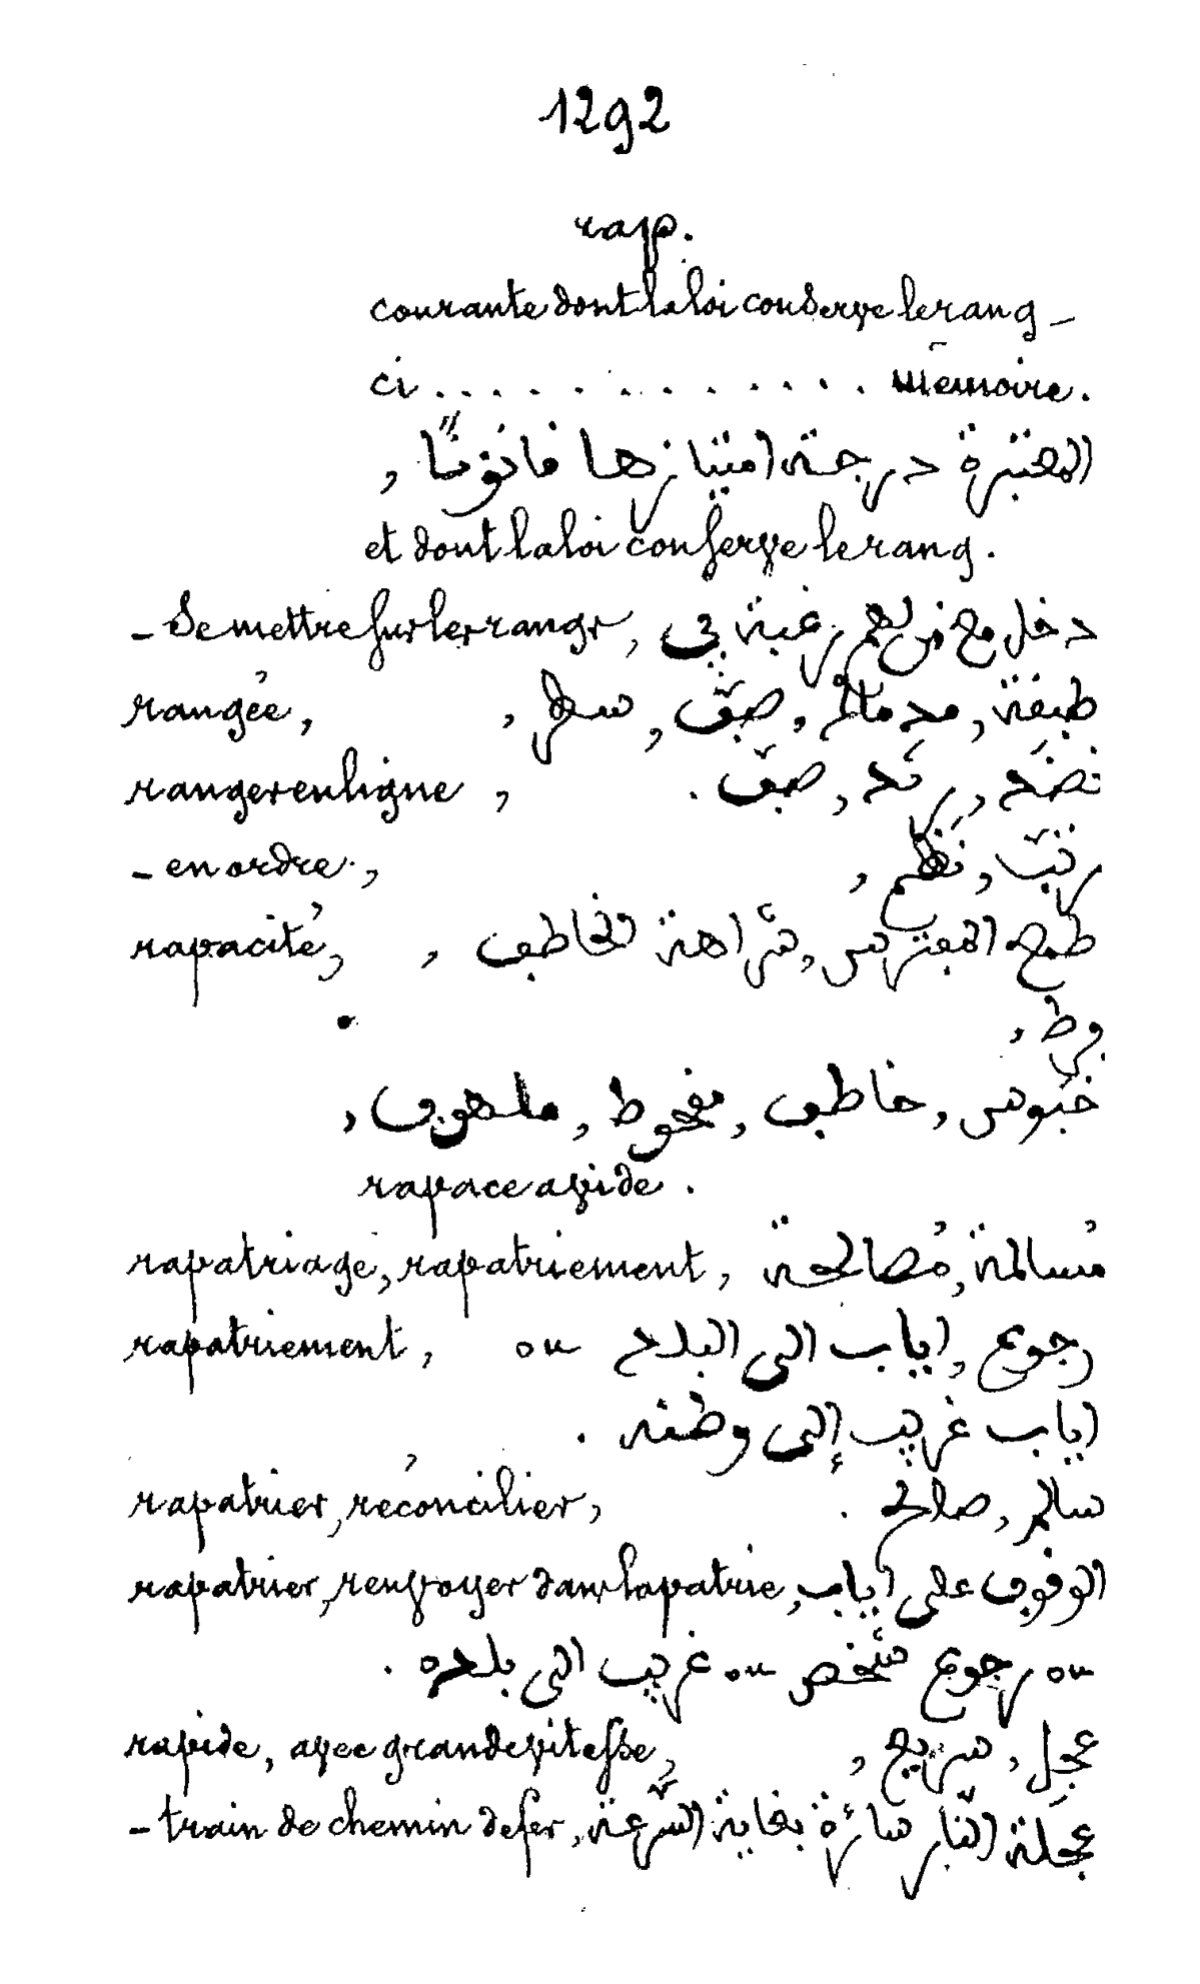 1292
rap.
courante dont la loi conserve le rang -
ci .............. mémoire.
المعتبرة درجة امتيازها قانونًا ,
et dont la loi conserve le rang.
- Se mettre sur les rangs, دخل مع من لهم رغبة في
rangée, طبقة, مدماك, صفّ, سطر,
ranger en ligne, نضَّد, رَتد, صفّ.
- en ordre, رتّب, نَظَّم,
rapacité, طمع المفترس, شراهة الخاطف,
خَبُوس, خاطف, ملهوف,
rapace avide.
rapatriage, rapatriement, مُسالمة, مُصالحة
rapatriement, رجوع, اياب الى البلد ou
اياب غريب إلى وطنه.
rapatrier, réconcilier, سالم, صالح.
rapatrier, renvoyer dans la patrie, الوقوف على اياب
ou رجوع شخص ou غريب الى بلده.
rapide, avec grande vitesse, عجل, سريع,
- train de chemin de fer, عجلة النار سائرة بغاية السُّرعة